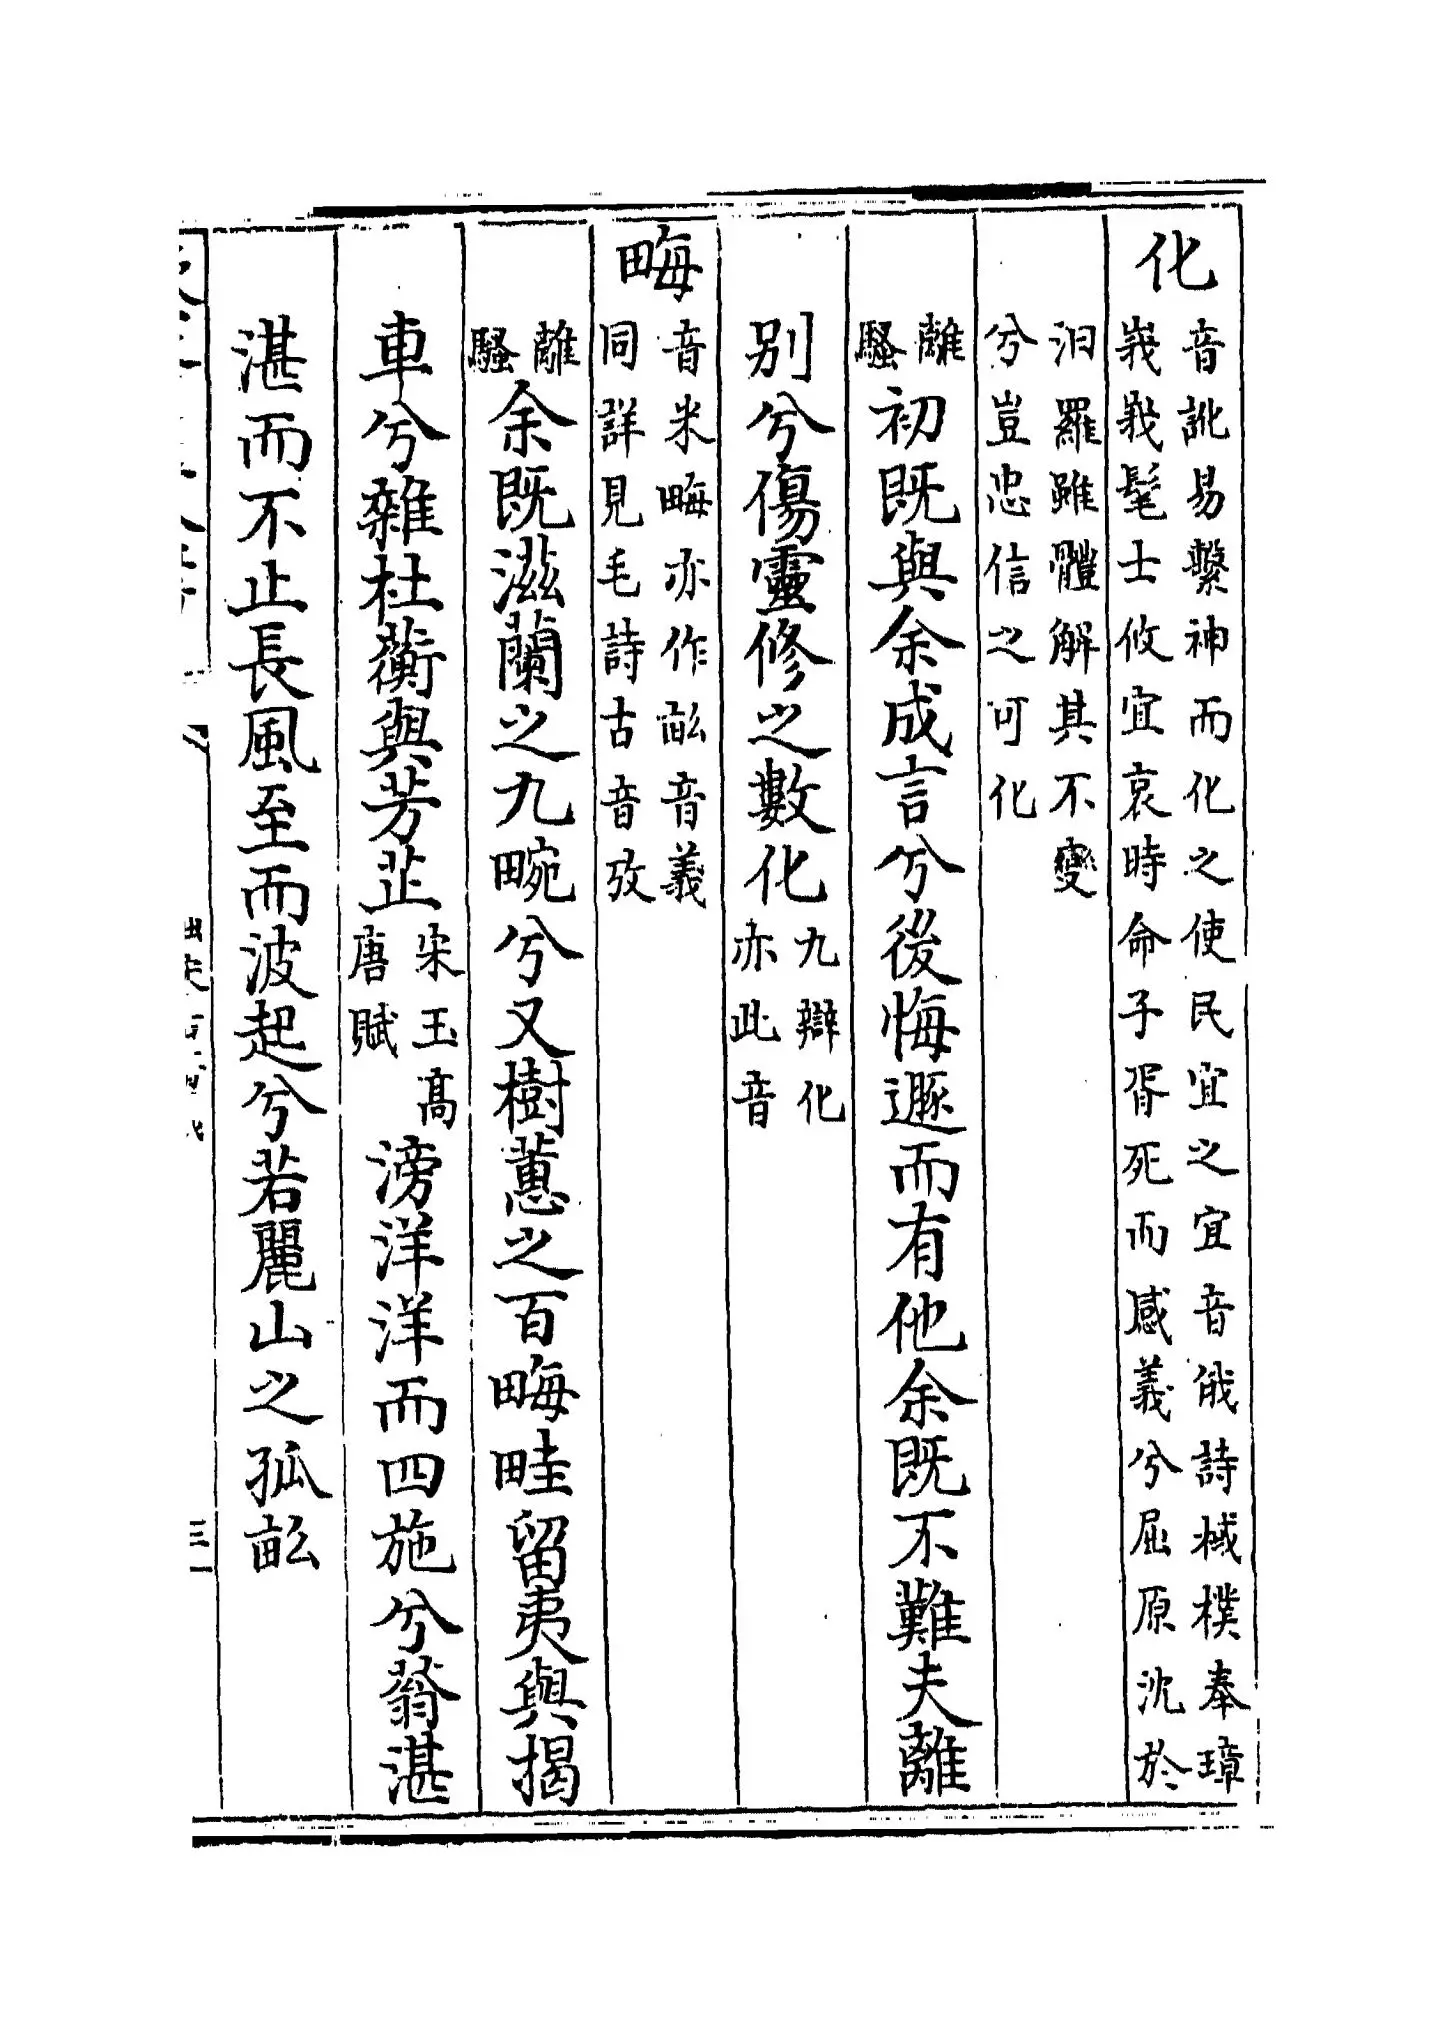 化
音訛易繫神而化之使民宜之宜音俄詩棫樸奉璋
峩峩髦士攸宜哀時命子胥死而感義兮屈原沈於
汨羅雖體解其不變
兮豈忠信之可化
離騷初既與余成言兮後悔遯而有他余既不難夫離
別兮傷靈修之數化九辯化亦此音
畮
音米畮亦作畝音義
同詳見毛詩古音攷
離騷余既滋蘭之九畹兮又樹蕙之百畮畦留夷與揭
車兮雜杜蘅與芳芷宋玉高唐賦滂洋洋而四施兮蓊湛
湛而不止長風至而波起兮若麗山之孤畝